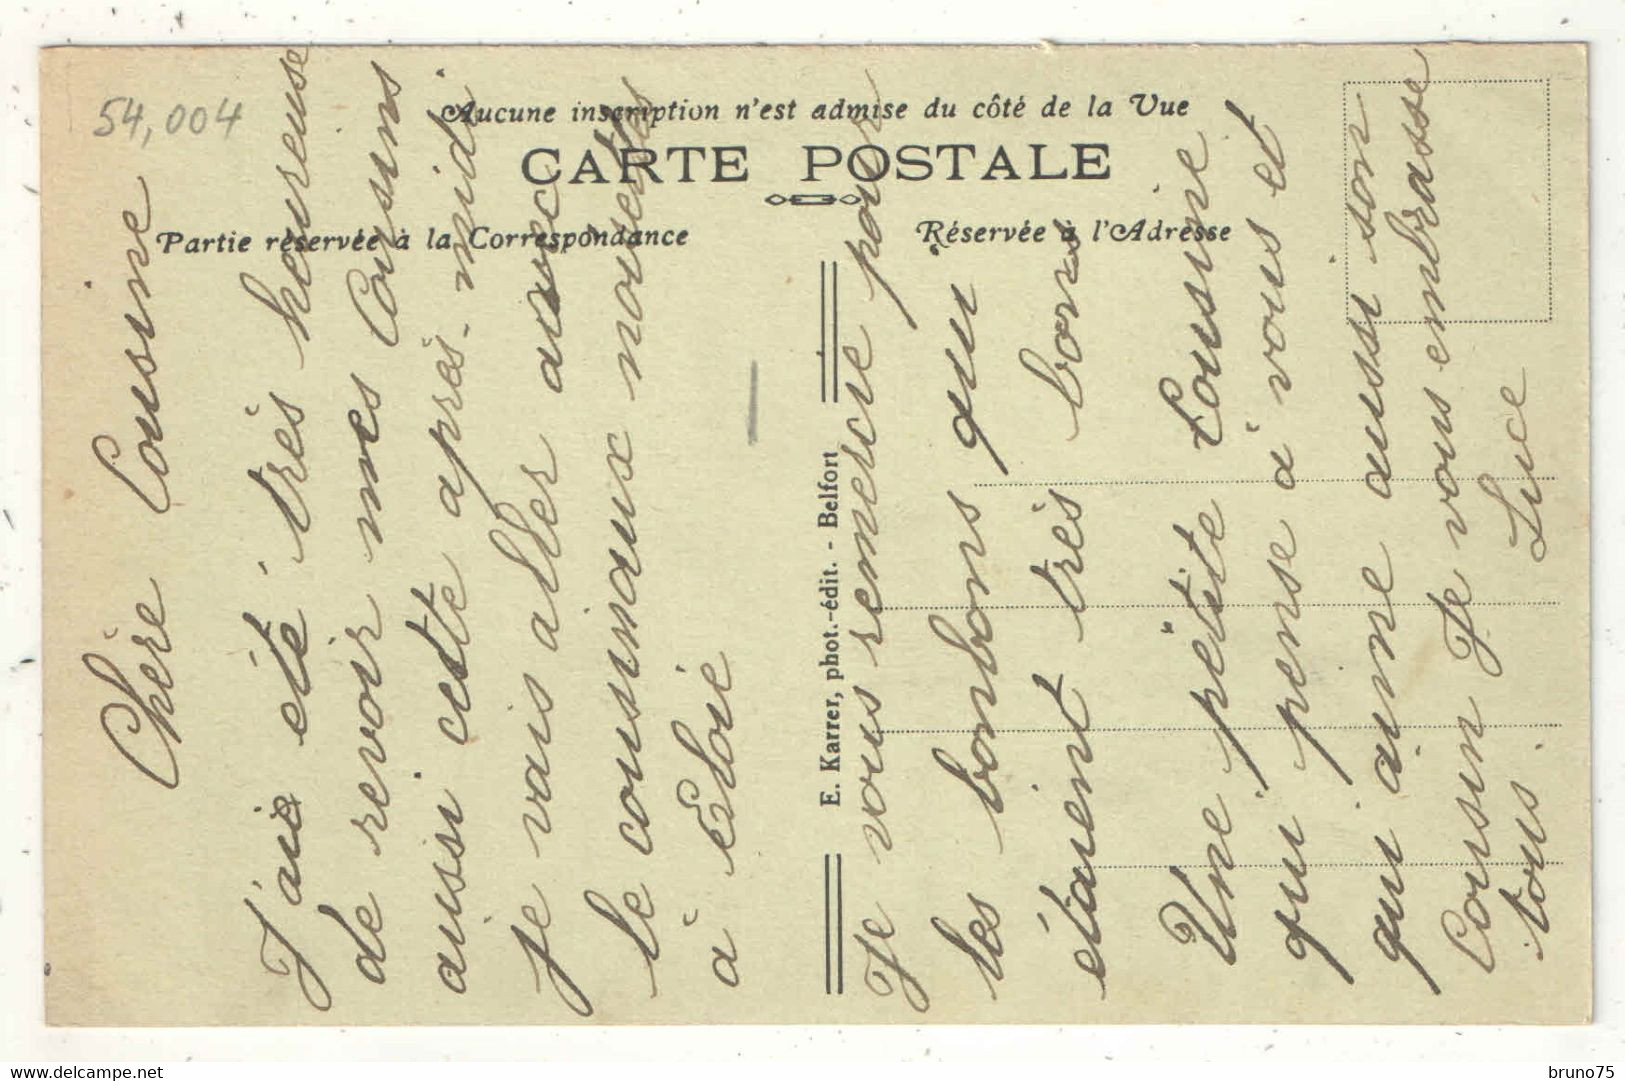 54,004
Aucune inscription n'est admise du côté de la Vue
CARTE POSTALE
Partie réservée à la Correspondance
Réservée à l'Adresse
E. Karrer, phot.-édit. - Belfort
Chère Cousine
J'aie été très heureuse
de revoir mes Cousins
aussi cette après-midi
je vais aller avec
le cousin aux nouvelles
à Eloie
Je vous remercie pour
les bonbons qui
étaient très bons
Une petite Cousine
qui pense à vous et
qui aime aussi son
Cousin Je vous embrasse
tous. Luce
www.delcampe.net
bruno75